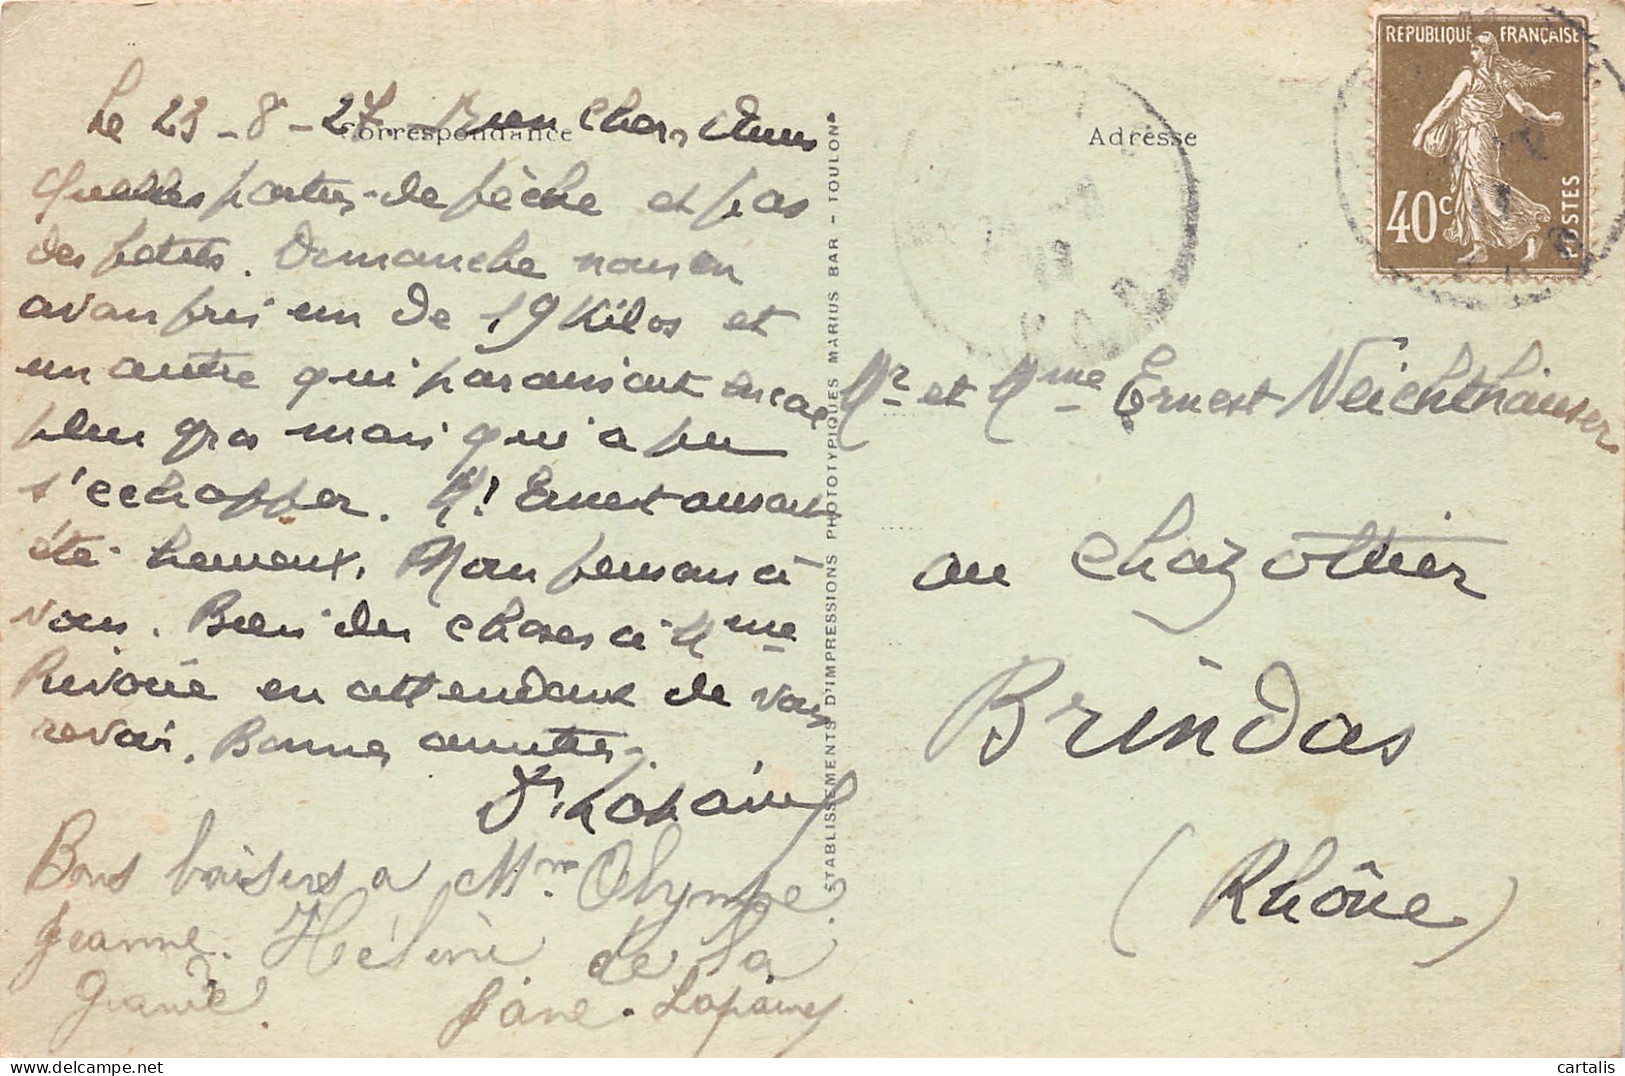 Le 23-8-27 Bien chers Amis
Correspondance
Quelles parties de pêche et pas
des petites. Dimanche nous en
avons pris un de 19 Kilos et
un autre qui paraissait encore
plus gros mais qui a pu
s'echapper. Mr Ernest aurait
été heureux. Nous pensons à
vous. Bien des choses à Mme
Rivoire en attendant de vous
revoir. Bonnes amitiés.
Lapaine
Bons baisers a Mme Olympe
Jeanne. Hélène de la
Grande Jane. Lapainey
ETABLISSEMENTS D'IMPRESSIONS PHOTOTYPIQUES MARIUS BAR - TOULON
Adresse
REPUBLIQUE FRANÇAISE
40c
POSTES
Mr et Mme Ernest Neichthauser
au Chazottier
Brindas
(Rhône)
cartalis